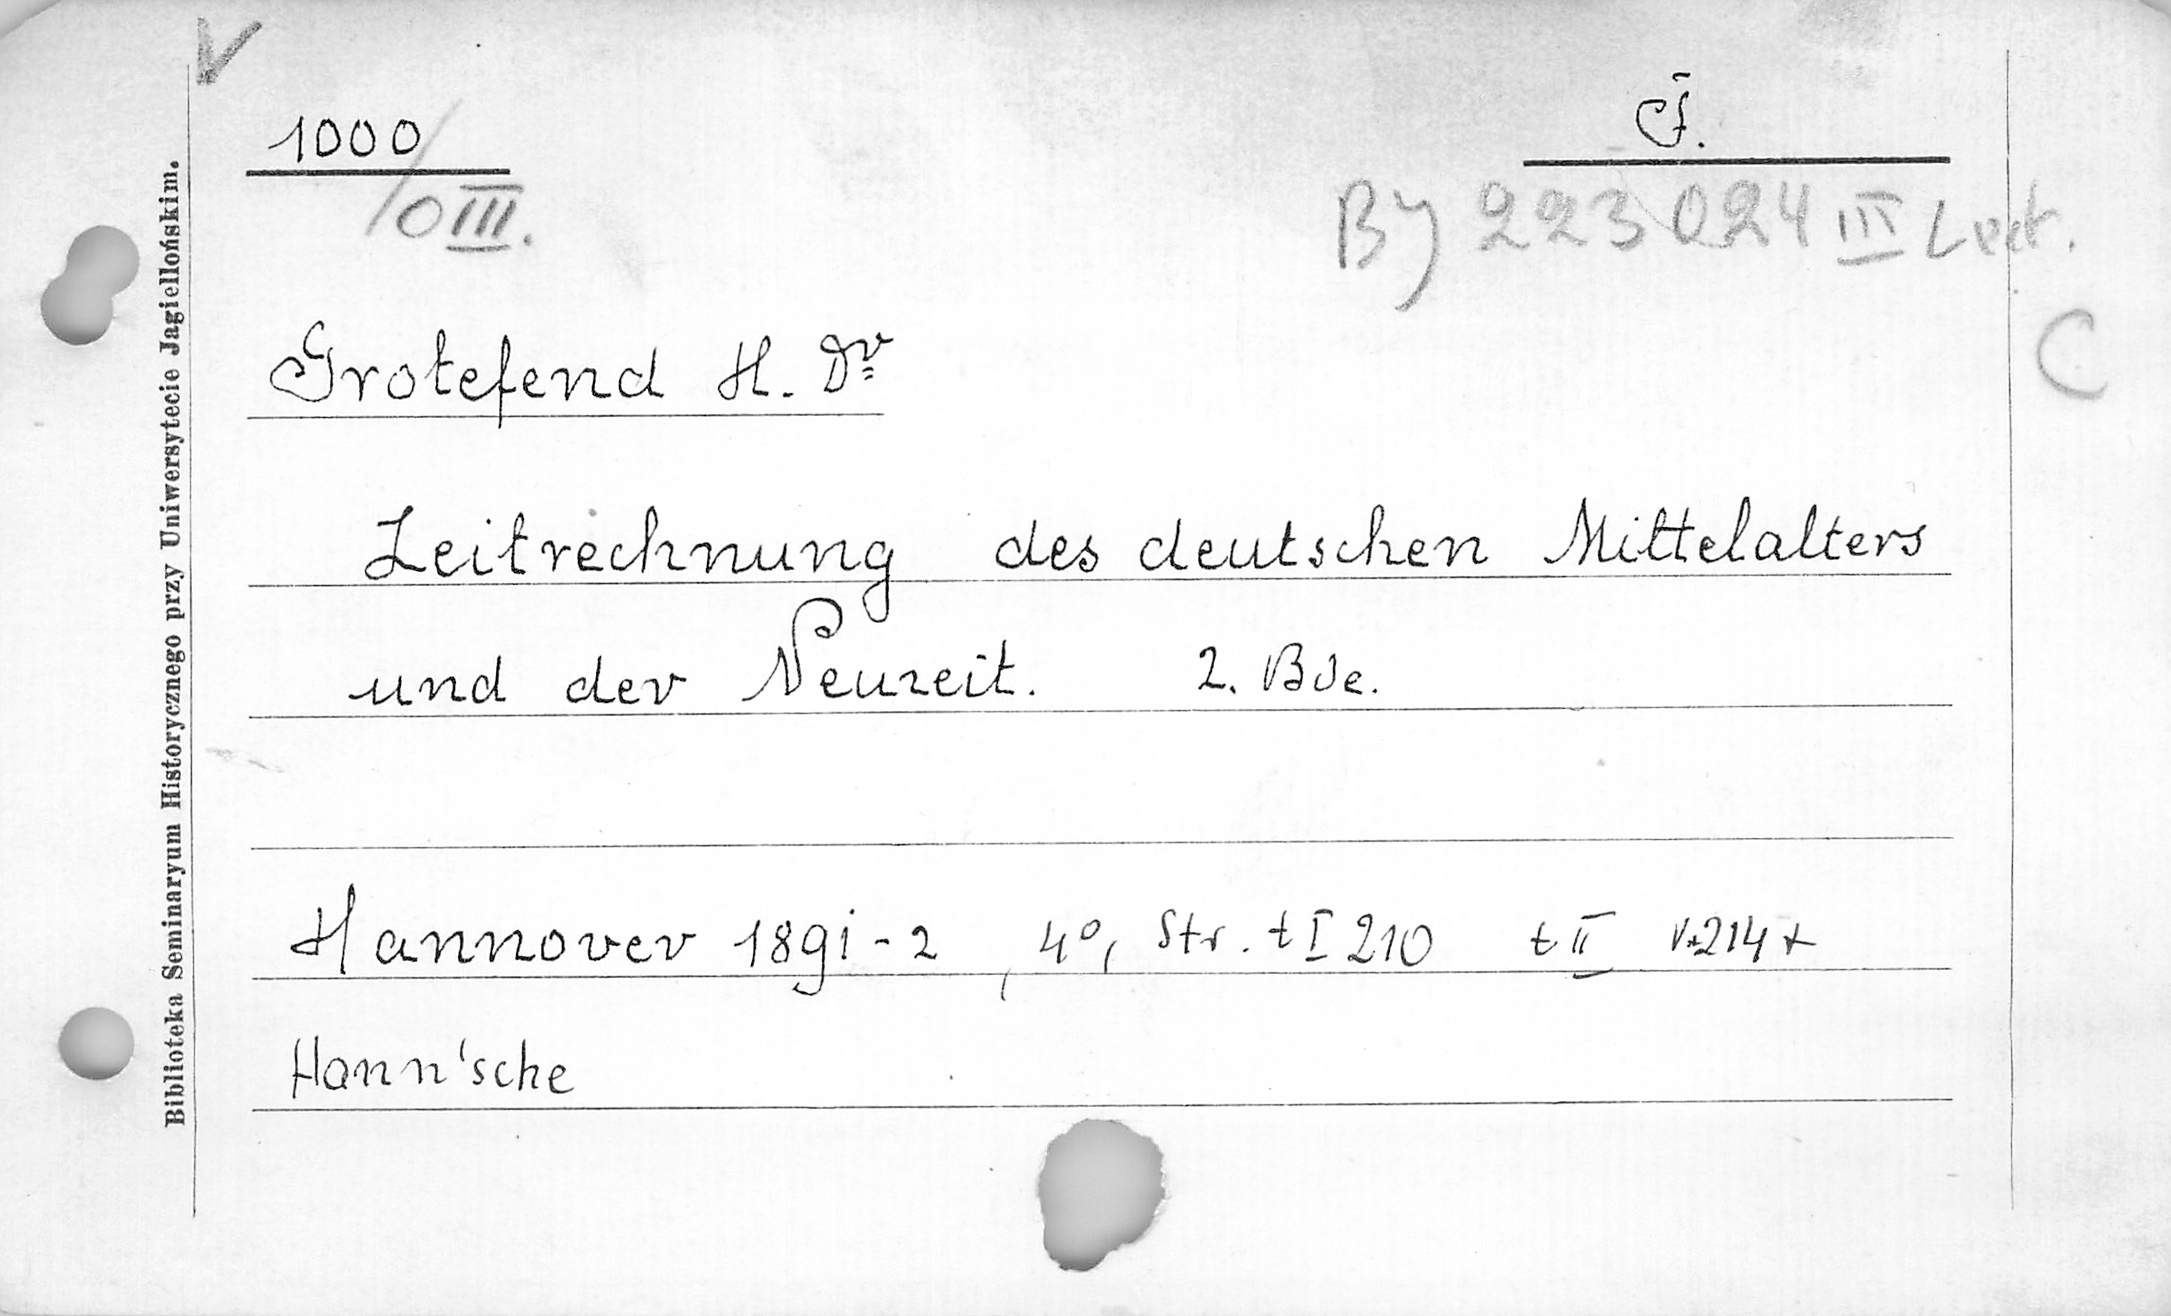 V
1000
/0 III.
J.
BJ 223024 III Lect.
C
Grotefend H. Dr
Zeitrechnung des deutschen Mittelalters
und der Neuzeit. 2. Bde.
Hannover 1891-2, 4°, Str. t I 210 t II 214 +
Hann'sche
Biblioteka Seminaryum Historycznego przy Uniwersytecie Jagiellońskim.